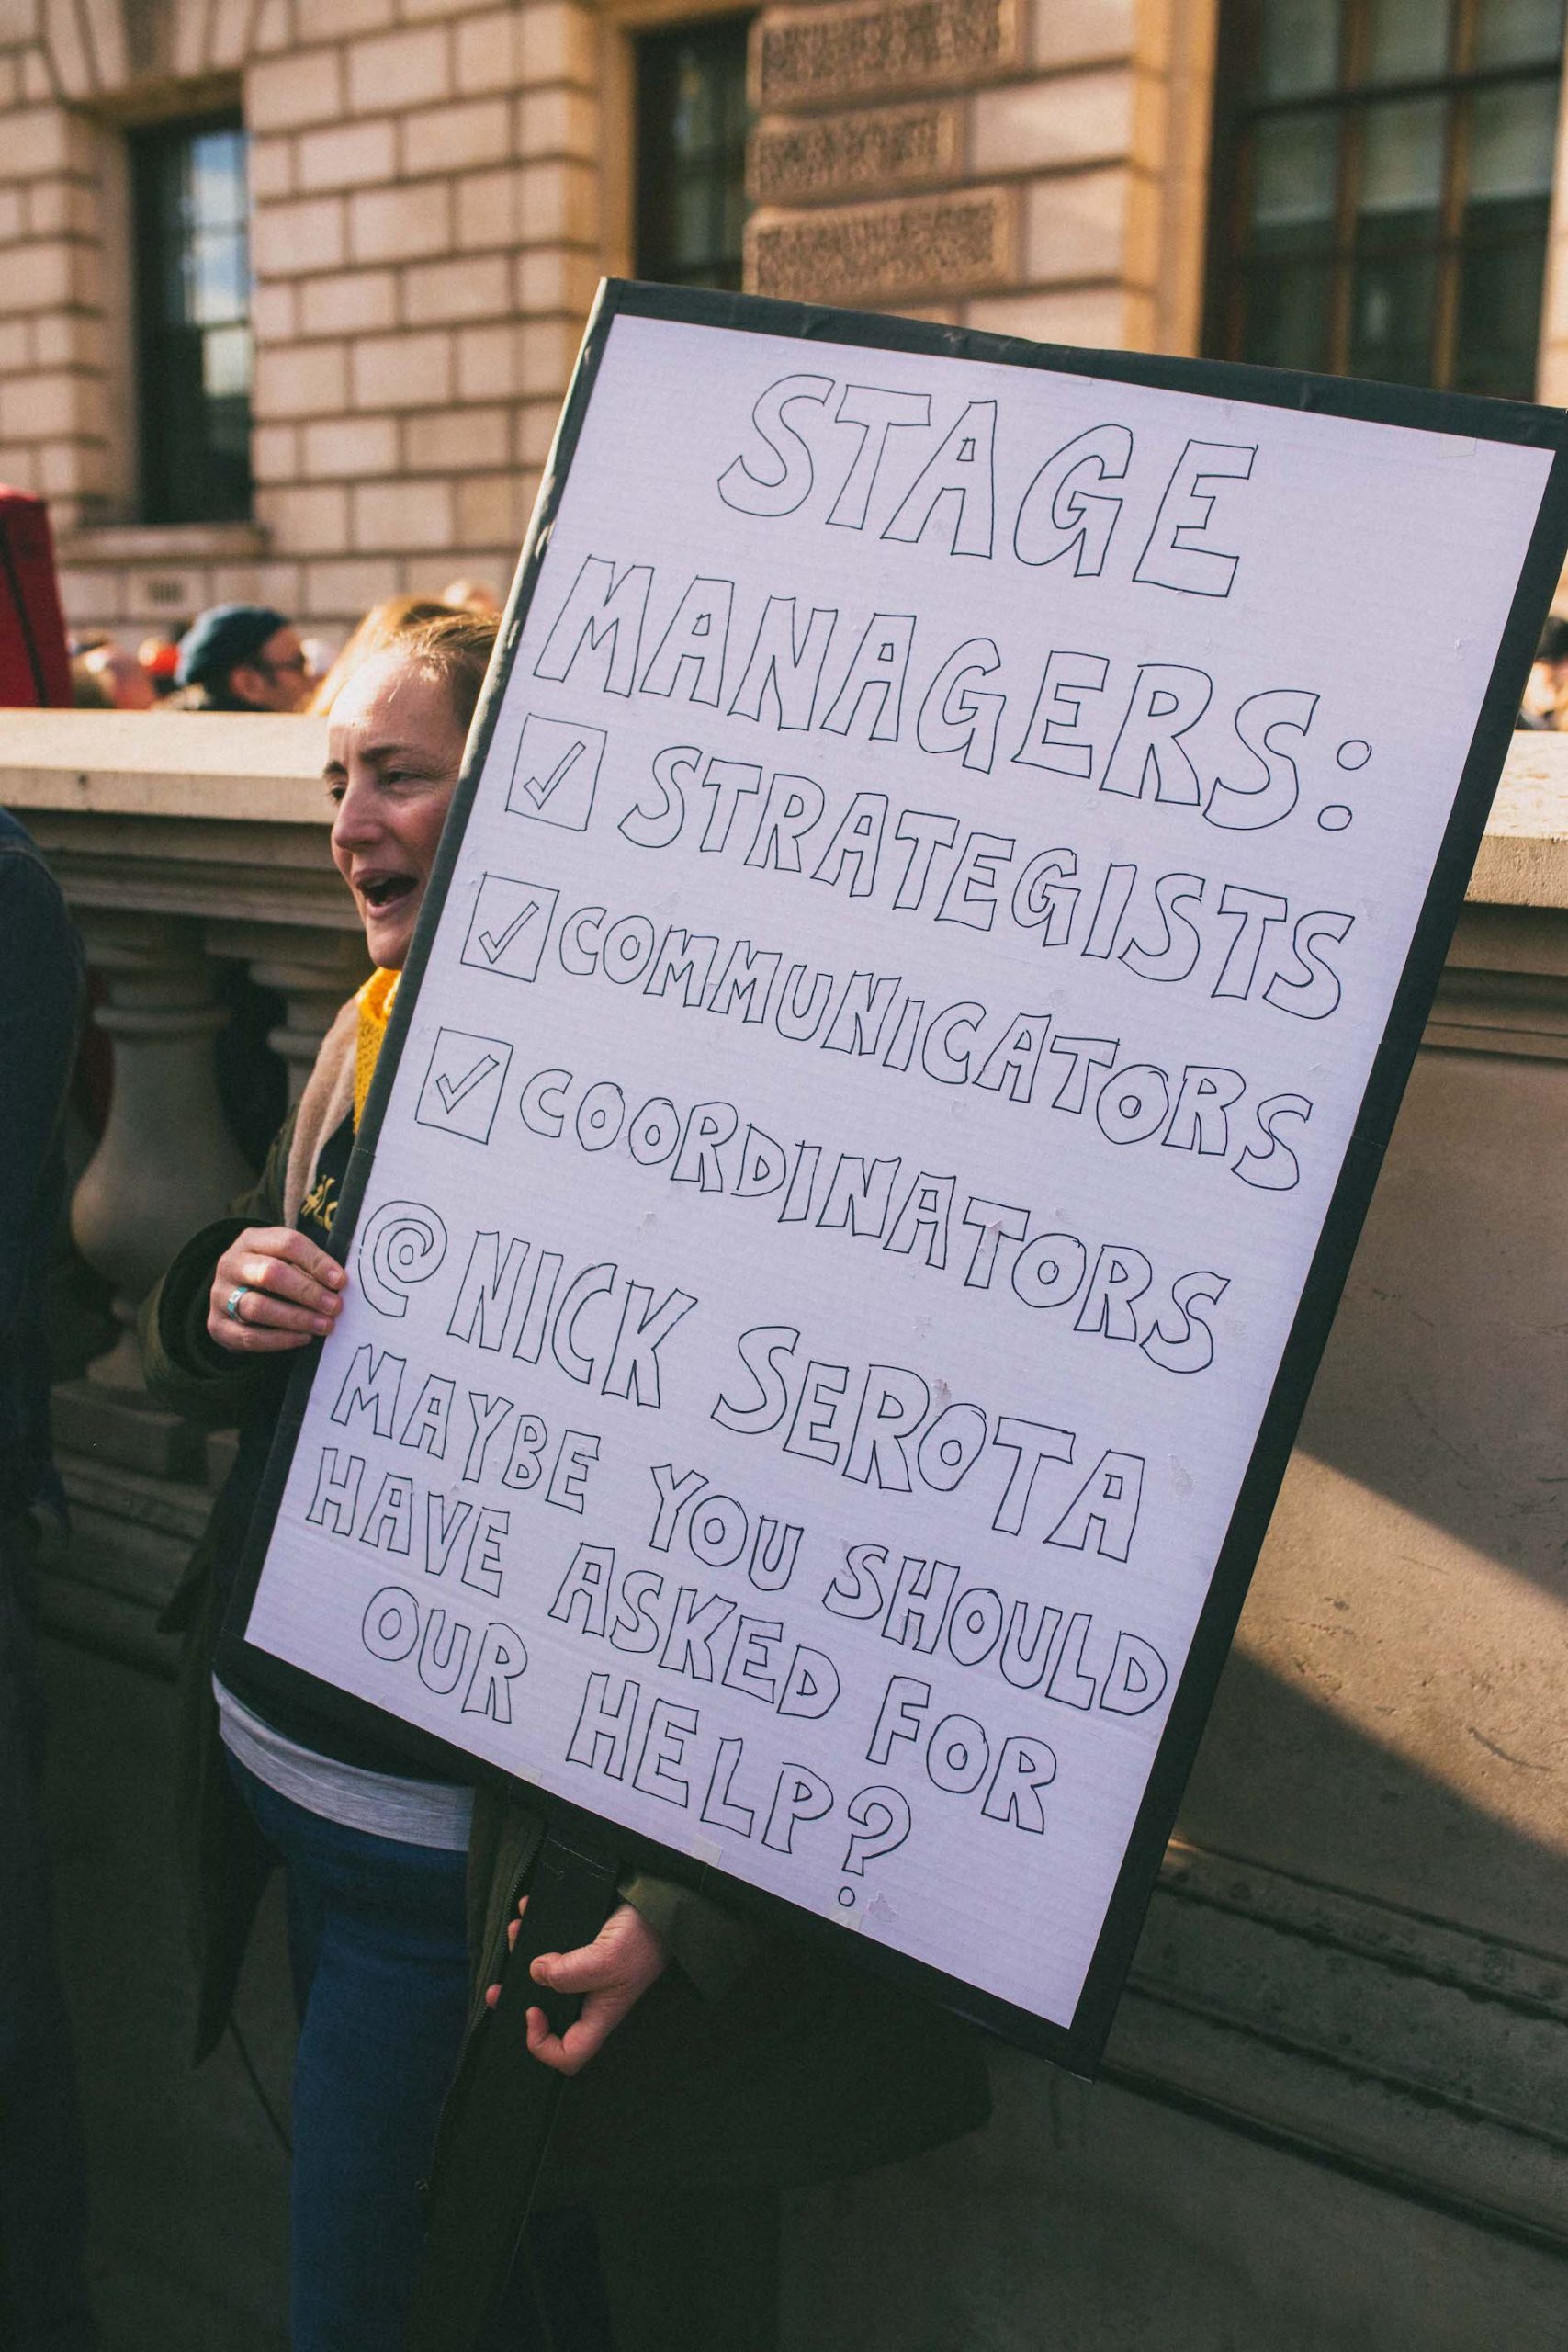 STAGE
MANAGERS:
STRATEGISTS
COMMUNICATORS
COORDINATORS
@NICK SEROTA
MAYBE YOU SHOULD
HAVE ASKED FOR
OUR HELP?